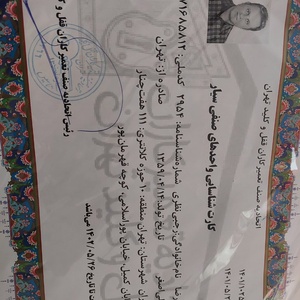 اتحادیه صنف تعمیرکاران قفل و کلید تهران
کارت شناسایی واحدهای صنفی سیار
رضا نام خانوادگی: رجبی نظری شماره شناسنامه: ۲۹۵۴ کدملی:
اصغر تاریخ تولد: ۱۳۵۹/۰۴/۱۴ صادره از: تهران
شهرستان: تهران منطقه: ۱۰ حوزه کلانتری: ۱۱۱ هفت چنار
خیابان کمیل، خیابان پوراسلامی، کوچه قهرمان پور
تا تاریخ ۱۴۰۲/۰۵/۲۶ می‌باشد
رئیس اتحادیه صنف تعمیرکاران قفل و